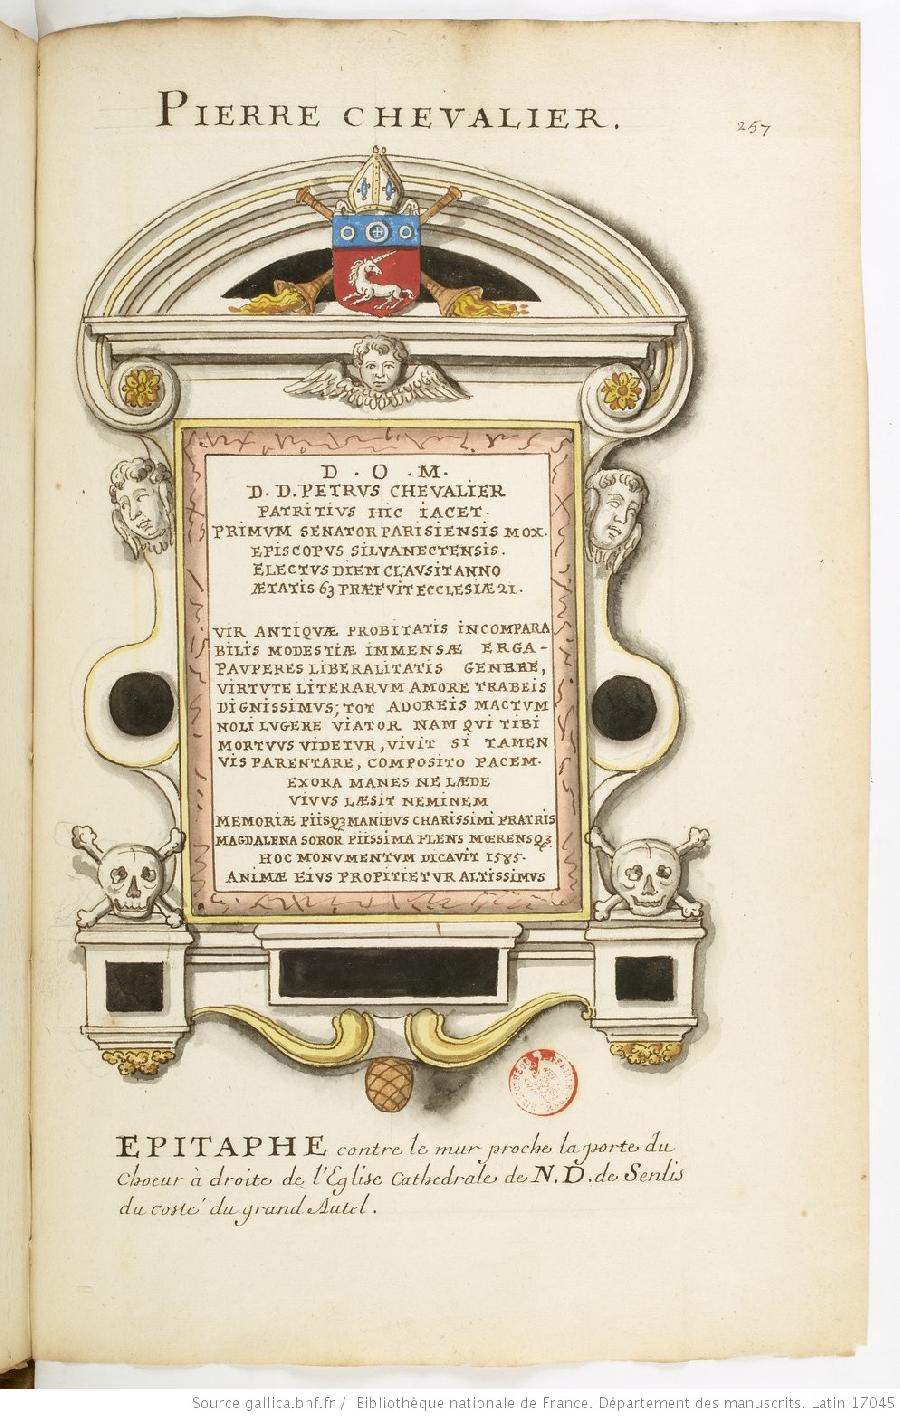 PIERRE CHEVALIER.
257
D. O. M.
D. D. PETRVS CHEVALIER
PATRITIVS HIC IACET
PRIMVM SENATOR PARISIENSIS MOX.
EPISCOPVS SILVANECTENSIS.
ELECTVS DIEM CLAVSIT ANNO
ÆTATIS 63 PRÆFVIT ECCLESIÆ 21.
VIR ANTIQVÆ PROBITATIS INCOMPARA
BILIS MODESTIÆ IMMENSÆ ERGA-
PAVPERES LIBERALITATIS GENERE,
VIRTVTE LITERARVM AMORE TRABEIS
DIGNISSIMVS; TOT ADOREIS MACTVM
NOLI LVGERE VIATOR NAM QVI TIBI
MORTVVS VIDETVR, VIVIT SI TAMEN
VIS PARENTARE, COMPOSITO PACEM.
EXORA MANES NE LÆDE
VIVVS LÆSIT NEMINEM
MEMORIÆ PIISQ3 MANIBVS CHARISSIMI FRATRIS
MAGDALENA SOROR PIISSIMA FLENS MŒRENSQ3
HOC MONVMENTVM DICAVIT 1585.
ANIMÆ EIVS PROPITIETVR ALTISSIMVS
EPITAPHE contre le mur proche la porte du
Choeur à droite de l'Eglise Cathedrale de N. D. de Senlis
du costé du grand Autel.
Source gallica.bnf.fr / Bibliothèque nationale de France. Département des manuscrits. Latin 17045